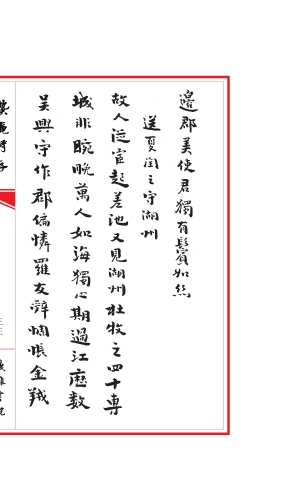 邊郡美使君獨有鬢如絲
送夏閏之守湖州
故人從宦起差池又見湖州杜牧之四十專
城非晼晚萬人如海獨心期過江應數
吳興守作郡偏憐羅友辭惆悵金羢